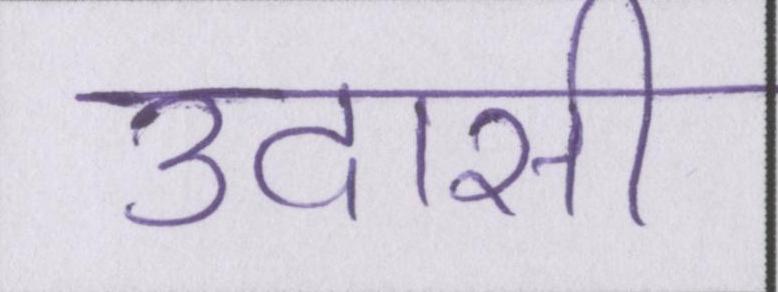 उदासी